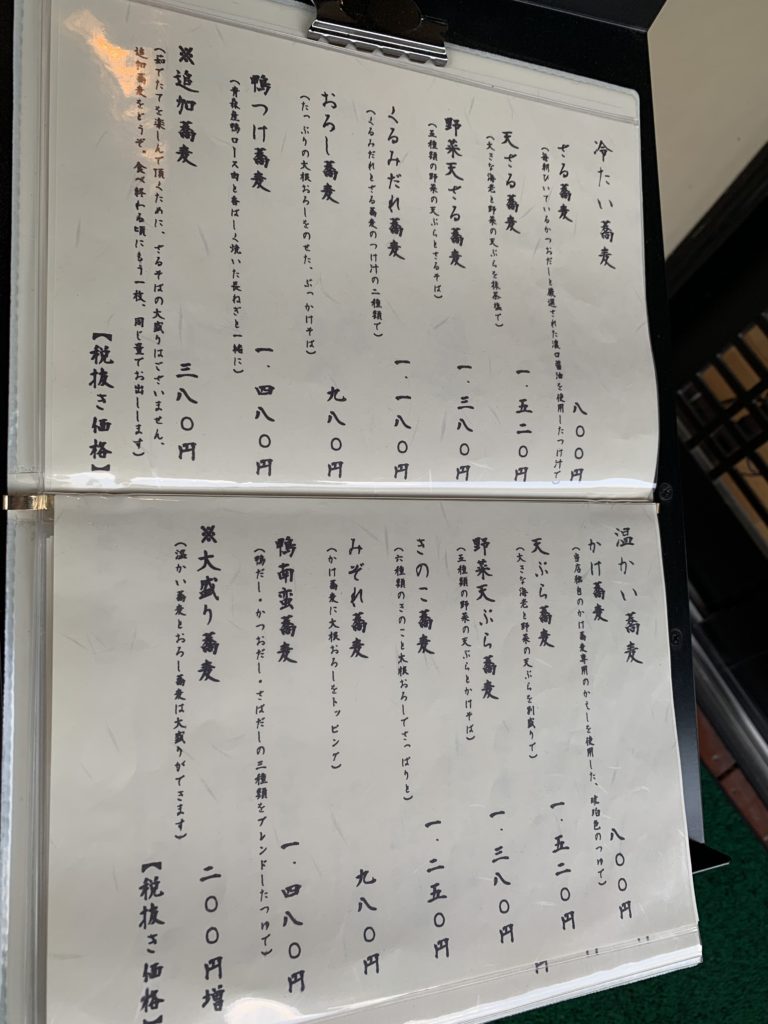 冷たい蕎麦
ざる蕎麦 八〇〇円
(毎朝ひいているかつおだしと厳選された濃口醤油を使用したつけ汁で)
天ざる蕎麦 一、五二〇円
(大きな海老と野菜の天ぷらを抹茶塩で)
野菜天ざる蕎麦 一、三八〇円
(五種類の野菜の天ぷらとざるそば)
くるみだれ蕎麦 一、一八〇円
(くるみだれとざる蕎麦のつけ汁の二種類で)
おろし蕎麦 九八〇円
(たっぷりの大根おろしをのせた、ぶっかけそば)
鴨つけ蕎麦 一、四八〇円
(青森産鴨ロース肉と香ばしく焼いた長ねぎと一緒に)
※追加蕎麦 三八〇円
(茹でたてを楽しんで頂くために、ざるそばの大盛りはございません、
追加蕎麦をどうぞ。食べ終わる頃にもう一枚、同じ量でお出しします)
【税抜き価格】
温かい蕎麦
かけ蕎麦 八〇〇円
(当店独自のかけ蕎麦専用のかえしを使用した、琥珀色のつゆで)
天ぷら蕎麦 一、五二〇円
(大きな海老と野菜の天ぷらを別盛りで)
野菜天ぷら蕎麦 一、三八〇円
(五種類の野菜の天ぷらとかけそば)
きのこ蕎麦 一、二五〇円
(六種類のきのこと大根おろしでさっぱりと)
みぞれ蕎麦 九八〇円
(かけ蕎麦に大根おろしをトッピング)
鴨南蛮蕎麦 一、四八〇円
(鴨だし・かつおだし・さばだしの三種類をブレンドしたつゆで)
※大盛り蕎麦 二〇〇円増
(温かい蕎麦とおろし蕎麦は大盛りができます)
【税抜き価格】